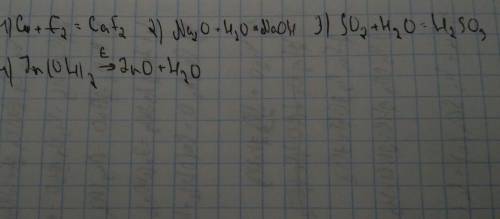 1) Ca + F₂ = CaF₂ 2) Na₂O + H₂O = NaOH 3) SO₂ + H₂O = H₂SO₃
4) Zn(OH)₂ →ᵗ ZnO + H₂O